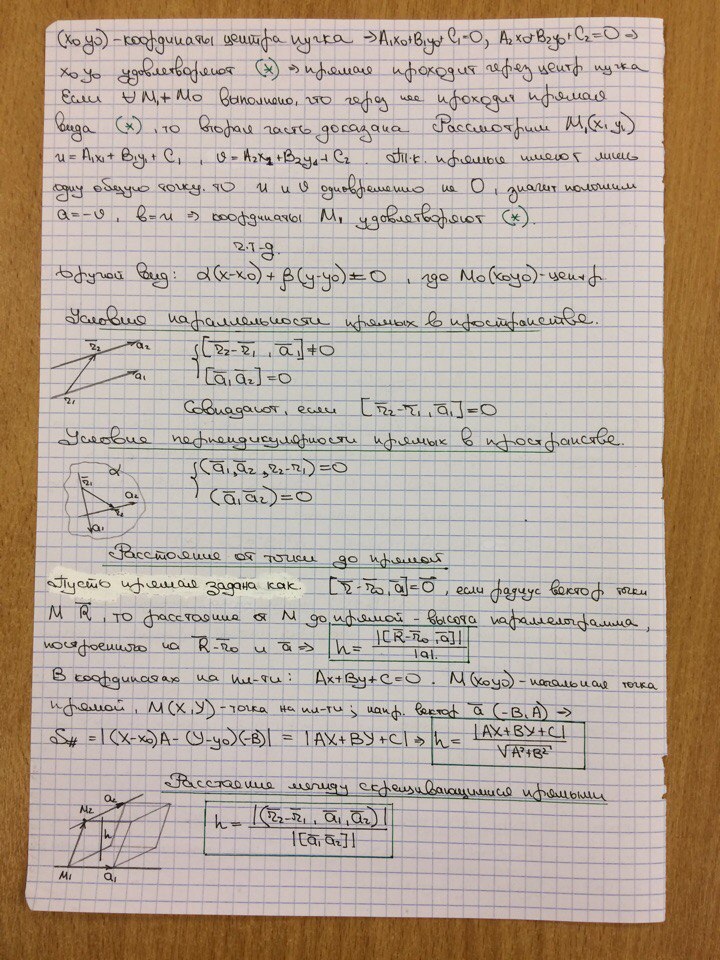 (x₀y₀)-координаты центра пучка ⇒A₁x₀+B₁y₀+C₁=0, A₂x₀+B₂y₀+C₂=0 ⇒
x₀y₀ удовлетворяют (*) ⇒ прямая проходит через центр пучка
Если ∀M₁≠M₀ выполнено, что через нее проходит прямая
вида (*), то вторая часть доказана Рассмотрим M₁(x₁y₁)
u=A₁x₁+B₁y₁+C₁, v=A₂x₁+B₂y₁+C₂. Т.к. прямые имеют лишь
одну общую точку, то u и v одновременно не 0, значит положим
a=-v, b=u ⇒ координаты M₁ удовлетворяют (*).
ч.т.д.
Другой вид: α(x-x₀)+β(y-y₀)=0, где M₀(x₀y₀)-центр
Условие параллельности прямых в пространстве.
r̄₂ a₂
a₁
r₁
{[r̄₂-r̄₁, ā₁]≠0
[ā₁ā₂]=0
Совпадают, если [r̄₂-r̄₁, ā₁]=0
Условие перпендикулярности прямых в пространстве.
α
r̄₁ a₂
r₂
a₁
{(ā₁, ā₂, r₂-r₁)=0
(ā₁ā₂)=0
Расстояние от точки до прямой
Пусть прямая задана как [r̄-r̄₀, ā]=0̄, если радиус вектор точки
M R̄, то расстояние от M до прямой - высота параллелограмма,
построенного на R̄-r̄₀ и ā ⇒ h = |[R̄-r̄₀, ā]| / |a|.
В координатах на пл-ти: Ax+By+C=0. M(x₀y₀)-начальная точка
прямой, M(X,Y)-точка на пл-ти; напр. вектор ā(-B,A) ⇒
S# = |(X-x₀)A-(Y-y₀)(-B)| = |AX+BY+C| ⇒ h = |AX+BY+C| / √A²+B²
Расстояние между скрещивающимися прямыми
a₂
M₂
h
M₁ a₁
h = |(r̄₂-r̄₁, ā₁, ā₂)| / |[ā₁ā₂]|